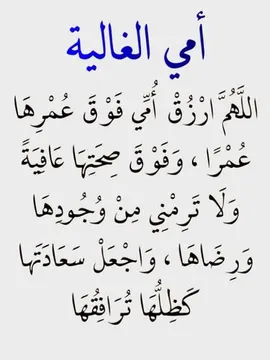 أمي الغالية
اللَّهُمَّ ارْزُقْ أُمِّي فَوْقَ عُمْرِهَا
عُمْرًا ، وَفَوْقَ صِحَتِهَا عَافِيَةً
وَلَا تَرِمْنِي مِنْ وُجُودِهَا
وَرِضَاهَا ، وَاجْعَلْ سَعَادَتَها
كَظِلُّهَا تُرَافِقُهَا